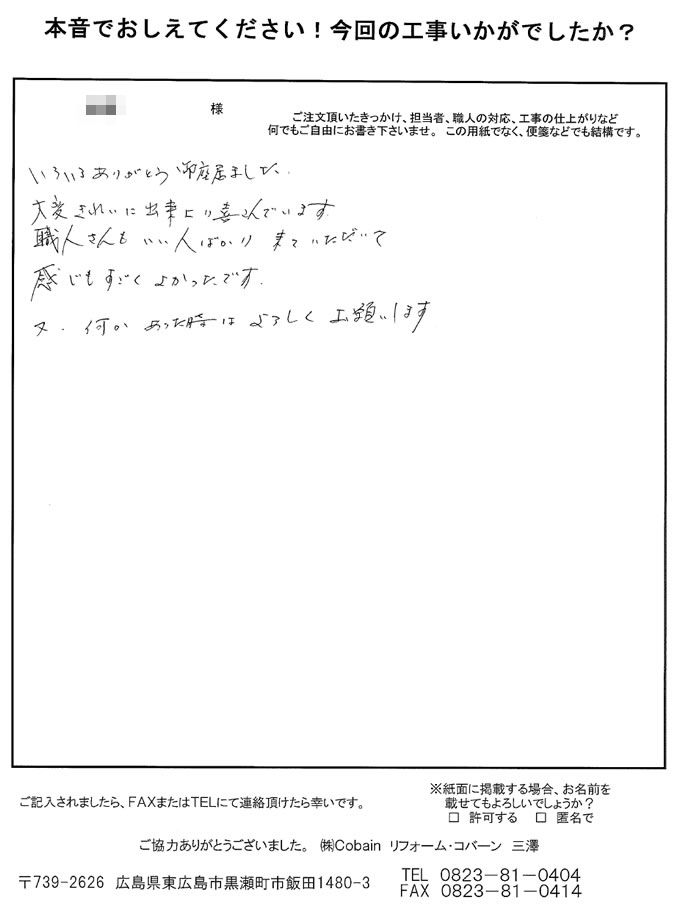 本音でおしえてください！今回の工事いかがでしたか？
様
ご注文頂いたきっかけ、担当者、職人の対応、工事の仕上がりなど
何でもご自由にお書き下さいませ。この用紙でなく、便箋などでも結構です。
いろいろありがとう御座居ました。
大変きれいに出来上り喜んでいます
職人さんもいい人ばかり来ていただいて
感じもすごくよかったです。
又、何かあった時はよろしくお願いします
ご記入されましたら、FAXまたはTELにて連絡頂けたら幸いです。
※紙面に掲載する場合、お名前を
載せてもよろしいでしょうか？
□ 許可する □ 匿名で
ご協力ありがとうございました。 ㈱Cobain リフォーム・コバーン 三澤
〒739-2626 広島県東広島市黒瀬町市飯田1480-3
TEL 0823-81-0404
FAX 0823-81-0414